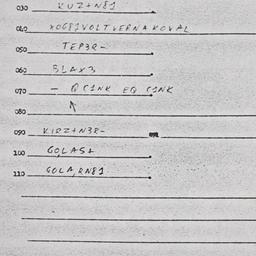 030 KUZ+N81
040 XOG81VOLTVERNAKOVAL
050 TEP3R-
060 SLAX3
070 - QC1NK EQ C1NK
080
090 KIRZ+N3R-
100 GOLAS+
110 GOLA,RN81